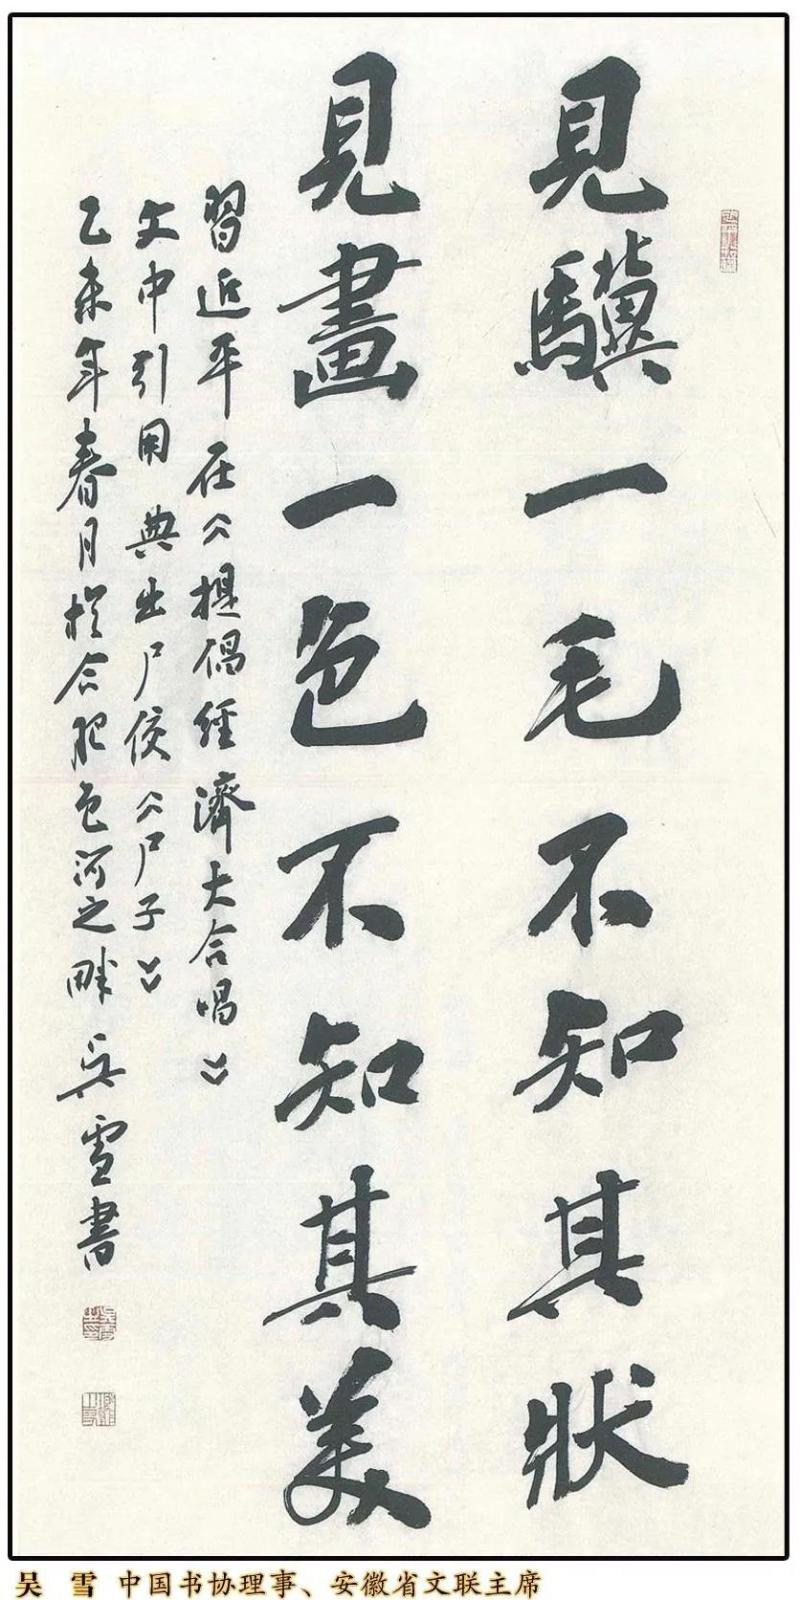 見驥一毛不知其狀
見畫一色不知其美
習近平在《提倡經濟大合唱》
文中引用典出尸佼《尸子》
乙未年春月於合肥包河之畔吴雪書
吴 雪 中国书协理事、安徽省文联主席